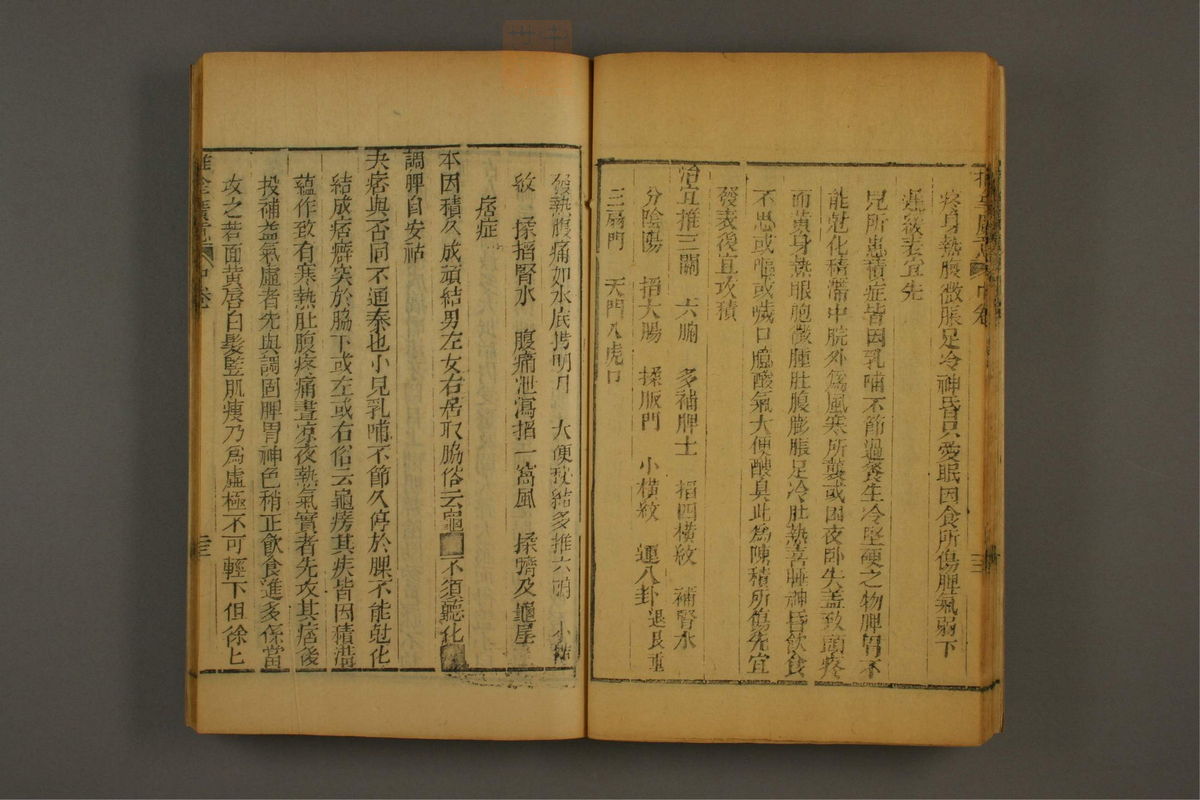 疼身熱腹微脹足冷神昏只愛眠因食所傷脾氣弱下
遲發表宜先
兒所患積症皆因乳哺不節過飡生冷堅硬之物脾胃不
能尅化積滯中脘外為風寒所襲或因夜卧失盖致頭疼
面黄身熱眼胞微腫肚腹膨脹足冷肚熱喜睡神昏飲食
不思或嘔或噦口噫酸氣大便醙臭此為陳積所傷先宜
發表後宜攻積
治宜推三關 六腑 多補脾土 掐四横紋 補腎水
分陰陽 掐大腸 揉版門 小横紋 運八卦退艮重
三扇門 天門入虎口
發熱腹痛如水底撈明月 大便秘結多推六腑 小横
紋 揉掐腎水 腹痛泄瀉掐一窩風 揉臍及龜尾
痞症
本因積久成頑結男左女右居取脇俗云龜 不須聽化
調脾自安祜
夫痞與否同不通泰也小兒乳哺不節久停於脾不能尅化
結成痞癖突於脇下或左或右俗云龜痨其疾皆因積滯
蘊作致有寒熱肚腹疼痛晝凉夜熱氣實者先攻其痞後
投補益氣虚者先與調固脾胃神色稍正飲食進多係當
攻之若面黄唇白髮竪肌瘦乃為虚極不可輕下但徐匕
中卷